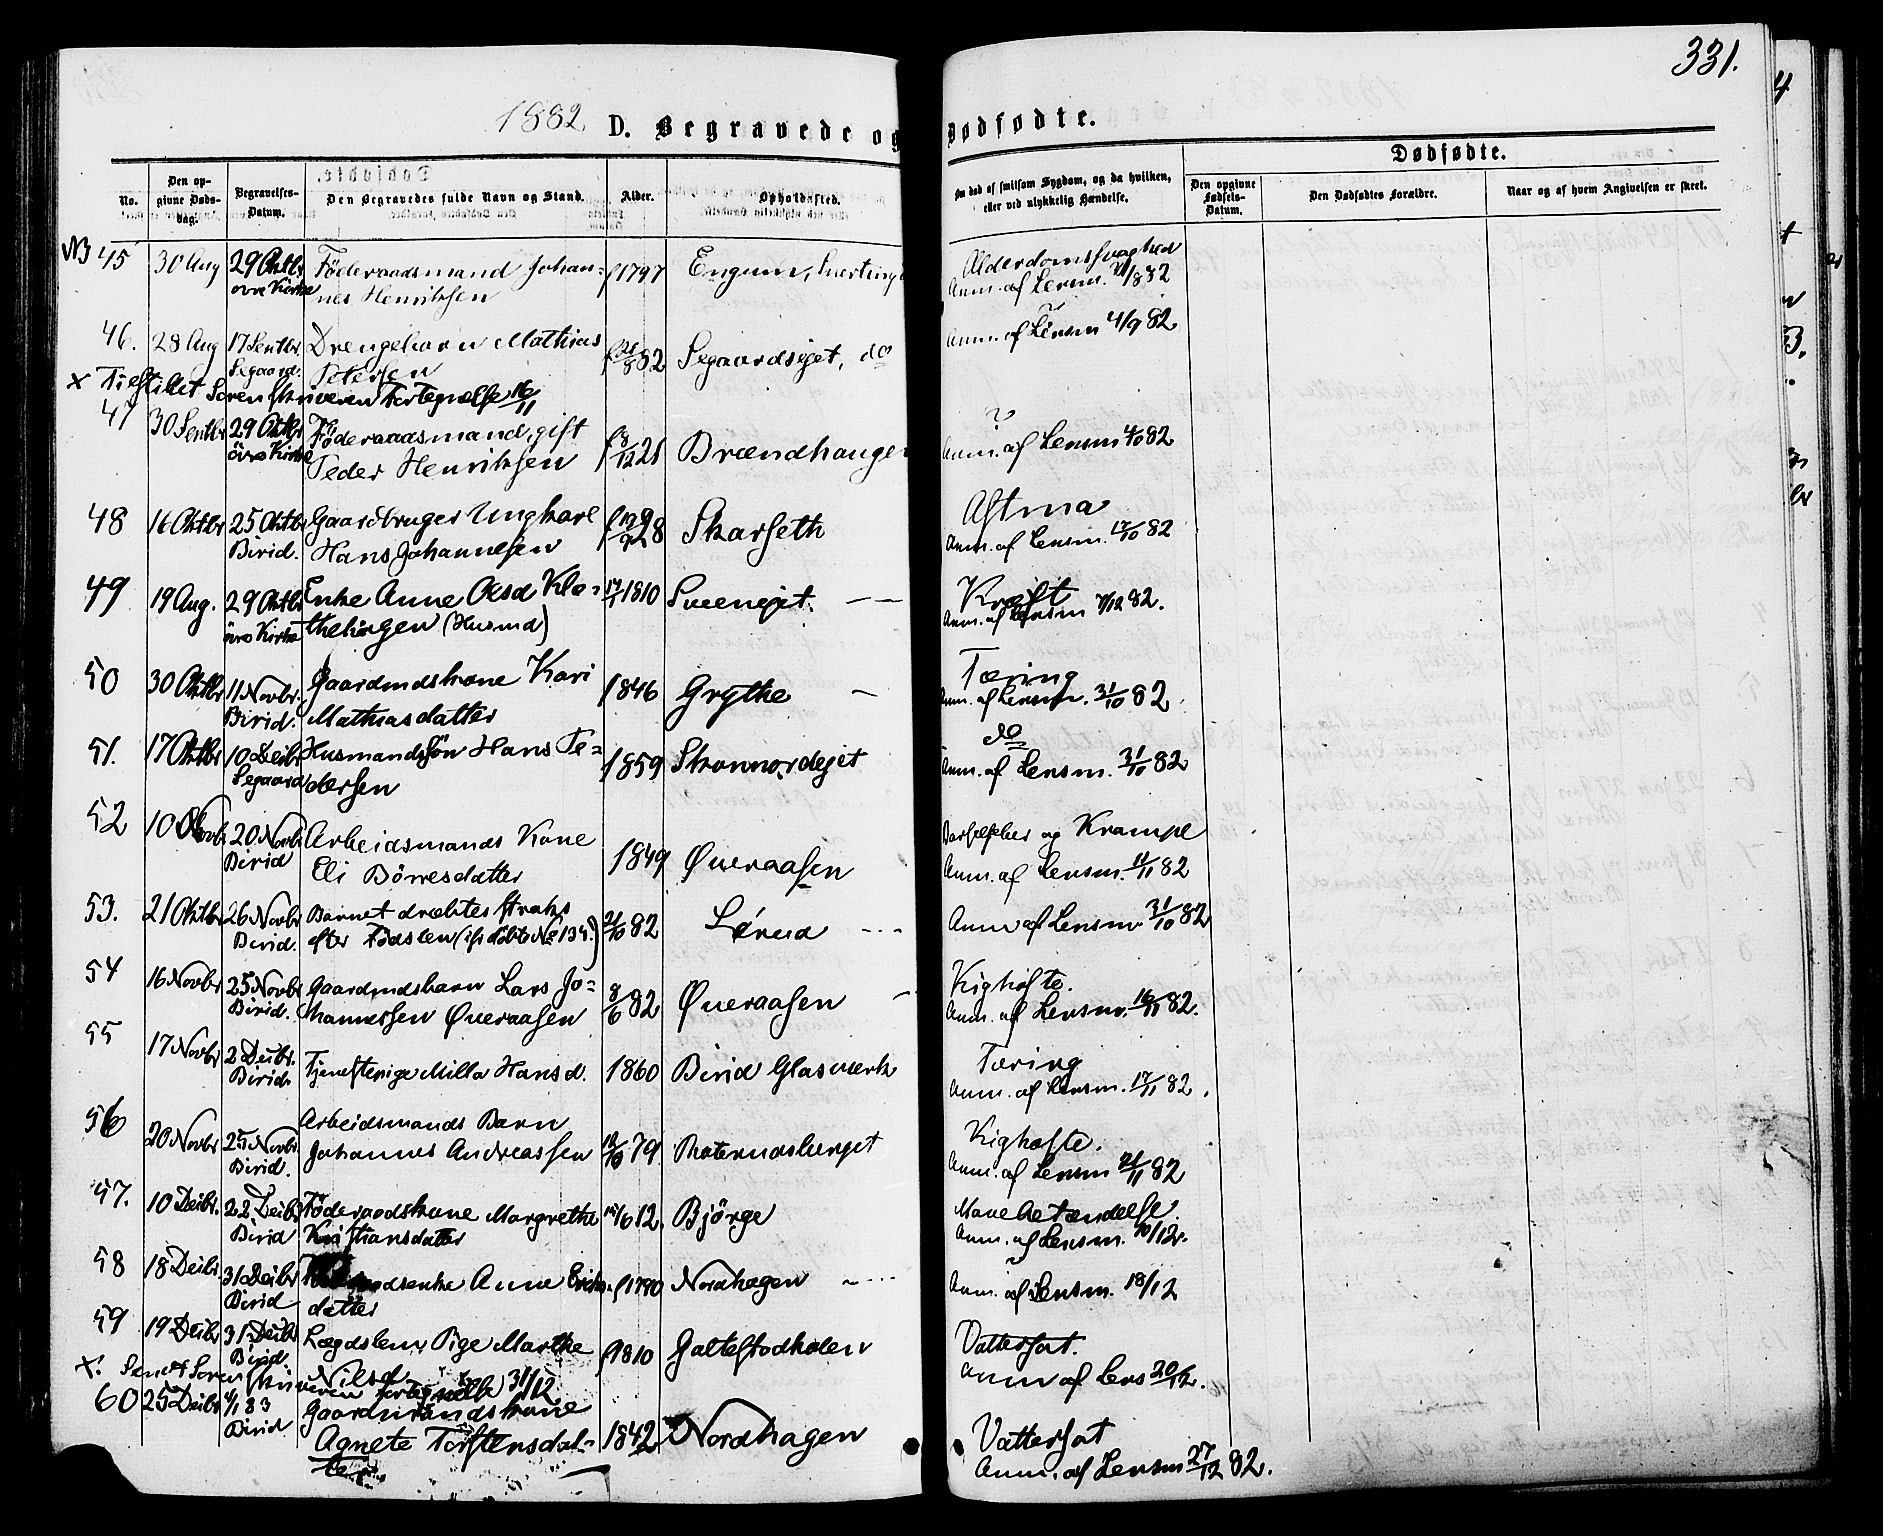 331.
1882 D. Begravede og Dødfødte.
Dødfødte.
No.
Den op-
givne Døds-
dag.
Begravelses-
Datum.
Den Begravedes fulde Navn og Stand.
Alder.
Opholdssted.
Om død af smitsom Sygdom, og da hvilken,
eller ved ulykkelig Hændelse.
Den opgivne
Fødsels-
Datum.
Den Dødfødtes Forældre.
Naar og af hvem Angivelsen er skeet.
NB 45 30 Aug 29 Oktbr Föderaadsmand Johan- f 1797 Engum, Snertingd Alderdomssvaghed
övre Kirke nes Henriksen Anm. af Lensm. 31/8 82
46. 28 Aug 17 Septbr. Drengebarn Mathias f 82 Segaardsejet, do ?
Segaard. Petersen Anm. af Lensm 4/9 82
x Tilstillet Sorenskriveren Fortegnelse 16/11
47 30 Septbr 29 Oktbr Föderaadsmand, gift f 8/12 21 Brændhaugen ?
övre Kirke Peder Henriksen Anm. af Lensm 4/10 82
48 16 Oktbr 25 Oktbr Gaardbruger Ungkarl f 19/9 28 Skarseth Astma
Birid. Hans Johannesen Anm. af Lensm. 17/10 82
49 19 Aug. 29 Oktbr Enke Anne Olsd Kla- 17/1 1810 Sveenejet. Kræft
övre Kirke thehaugen (Husmd) Anm. af Lensm 7/12 82.
50 30 Oktbr 11 Novbr. Gaardmdskone Kari f 1846 Grythe Tæring
Birid. Mathiasdatter Anm. af Lensm. 31/10 82
51. 17 Oktbr 10 Decbr Husmandssön Hans Pe- 1859 Skonnordejet do
Segaard dersen Anm. af Lensm. 31/10 82
52 10 Novbr 20 Novbr Arbeidsmands Kone 1849 Øveraasen Barselfeber og Krampe
Birid Eli Börresdatter Anm. af Lensm. 11/11 82
53. 21 Oktbr 26 Novbr Barnet dræbtes straks 21/10 82 Anm af Lensm. 31/10 82
Birid. efter Födslen (cfr döbte No 134.)
54 16 Novbr 25 Novbr Gaardmdsbarn Lars Jo- 8/6 82 Øveraasen Kighoste.
Birid. hannessen Øveraasen Anm. af Lensm. 16/11 82.
55 17 Novbr 2 Decbr. Tjenestepige Milla Hansd. 1860 Birid Glasværk Tæring
Birid. Anm. af Lensm. 17/11 82.
56 20 Novbr 25 Novbr. Arbeidsmands Barn
Birid. Johannes Andreassen 79 Raternudsberget Kighoste.
Anm. af Lensm 21/11 82
57. 10 Decbr. 22 Decbr Föderaadskone Margrethe 12. Björge Mavebetændelse.
Birid Kristiansdatter Anm. af Lensm. 10/12.
58 18 Decbr. 31 Decbr Föderaadsenke Anne Eriks- f 1790 Nordhagen ?
Birid datter Anm. af Lensm. 18/12
59 19 Decbr 31 Decbr Lægdslem Pige Marthe f 1810 Galtestadholen Vattersot.
Birid. Nilsd Anm af Lens 20/12.
x. Sendt Sorenskriveren Fortegnelse 31/12
60 25 Decbr 4/1 83 Gaardmandskone 1842 Nordhagen Vattersot
Birid Agnete Torstensdat- Anm. af Lensm 27/12 82.
ter